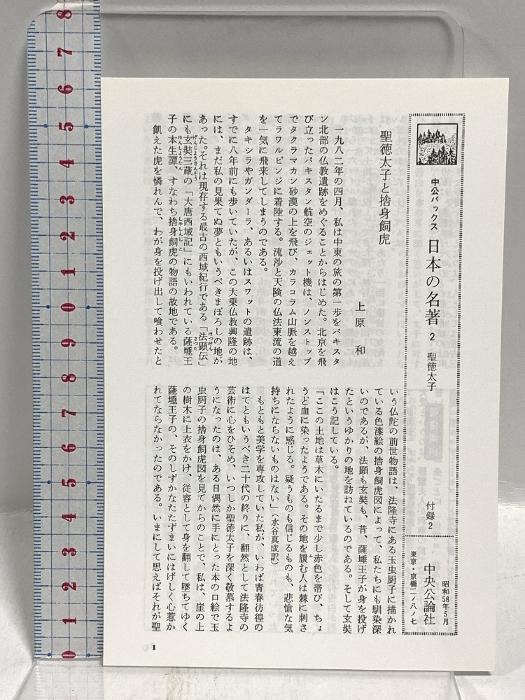 中公バックス 日本の名著 2 聖徳太子 付録2
昭和58年5月
中央公論社
東京・京橋二ノ八ノ七
聖徳太子と捨身飼虎
上原 和
一九八二年の四月、私は中東の旅の第一歩をパキスタ
ン北部の仏教遺跡をめぐることからはじめた。北京を飛
び立ったパキスタン航空のジェット機は、ノンストップ
でタクラマカン砂漠の上を飛び、カラコラム山脈を越え
てラワルピンジに着陸する。流沙と天険の仏法東流の道
を一気に飛来してしまうのである。
タキシラやガンダーラ、あるいはスワットの遺跡は、
すでに八年前にも歩いていたが、この大乗仏教興隆の地
には、まだ私の見果てぬ夢ともいうべきまぼろしの地が
あった。それは現存する最古の西域紀行である『法顕伝』
にも玄奘三蔵の『大唐西域記』にもいわれている薩埵王
子の本生譚、すなわち捨身飼虎の物語の故地である。
飢えた虎を憐れんで、わが身を投げ出して喰わせたと
いう仏陀の前世物語は、法隆寺にある玉虫厨子に描かれ
ている色漆絵の捨身飼虎図によって、私たちにも馴染深
いのであるが、法顕も玄奘も、昔、薩埵王子が身を投げ
たというゆかりの地を訪ねているのである。そして玄奘
はこう記している。
「ここの土地は草木にいたるまで少し赤色を帯び、ちょ
うど血に染ったようである。その地を履む人は棘に刺さ
れたように感じる。疑うものも信じるものも、悲愴な気
持ちにならないものはない」(水谷真成訳)
もともと美学を専攻していた私が、いわば青春彷徨の
はてともいうべき二十代の終りに、翻然として法隆寺の
芸術に心をひそめ、いつしか聖徳太子を深く敬慕するよ
うになったのは、ある日偶然に手にとった本の口絵で玉
虫厨子の捨身飼虎図を見てからのことで、私は、崖の上
の樹木に上衣をかけ、従容として身を翻して墜ちてゆく
薩埵王子の、そのしずかなたたずまいにはげしく心惹か
れてならなかったのである。いまにして思えばそれが聖
1
8
7
6
5
4
3
2
1
0
9
8
7
6
5
4
3
2
1
0